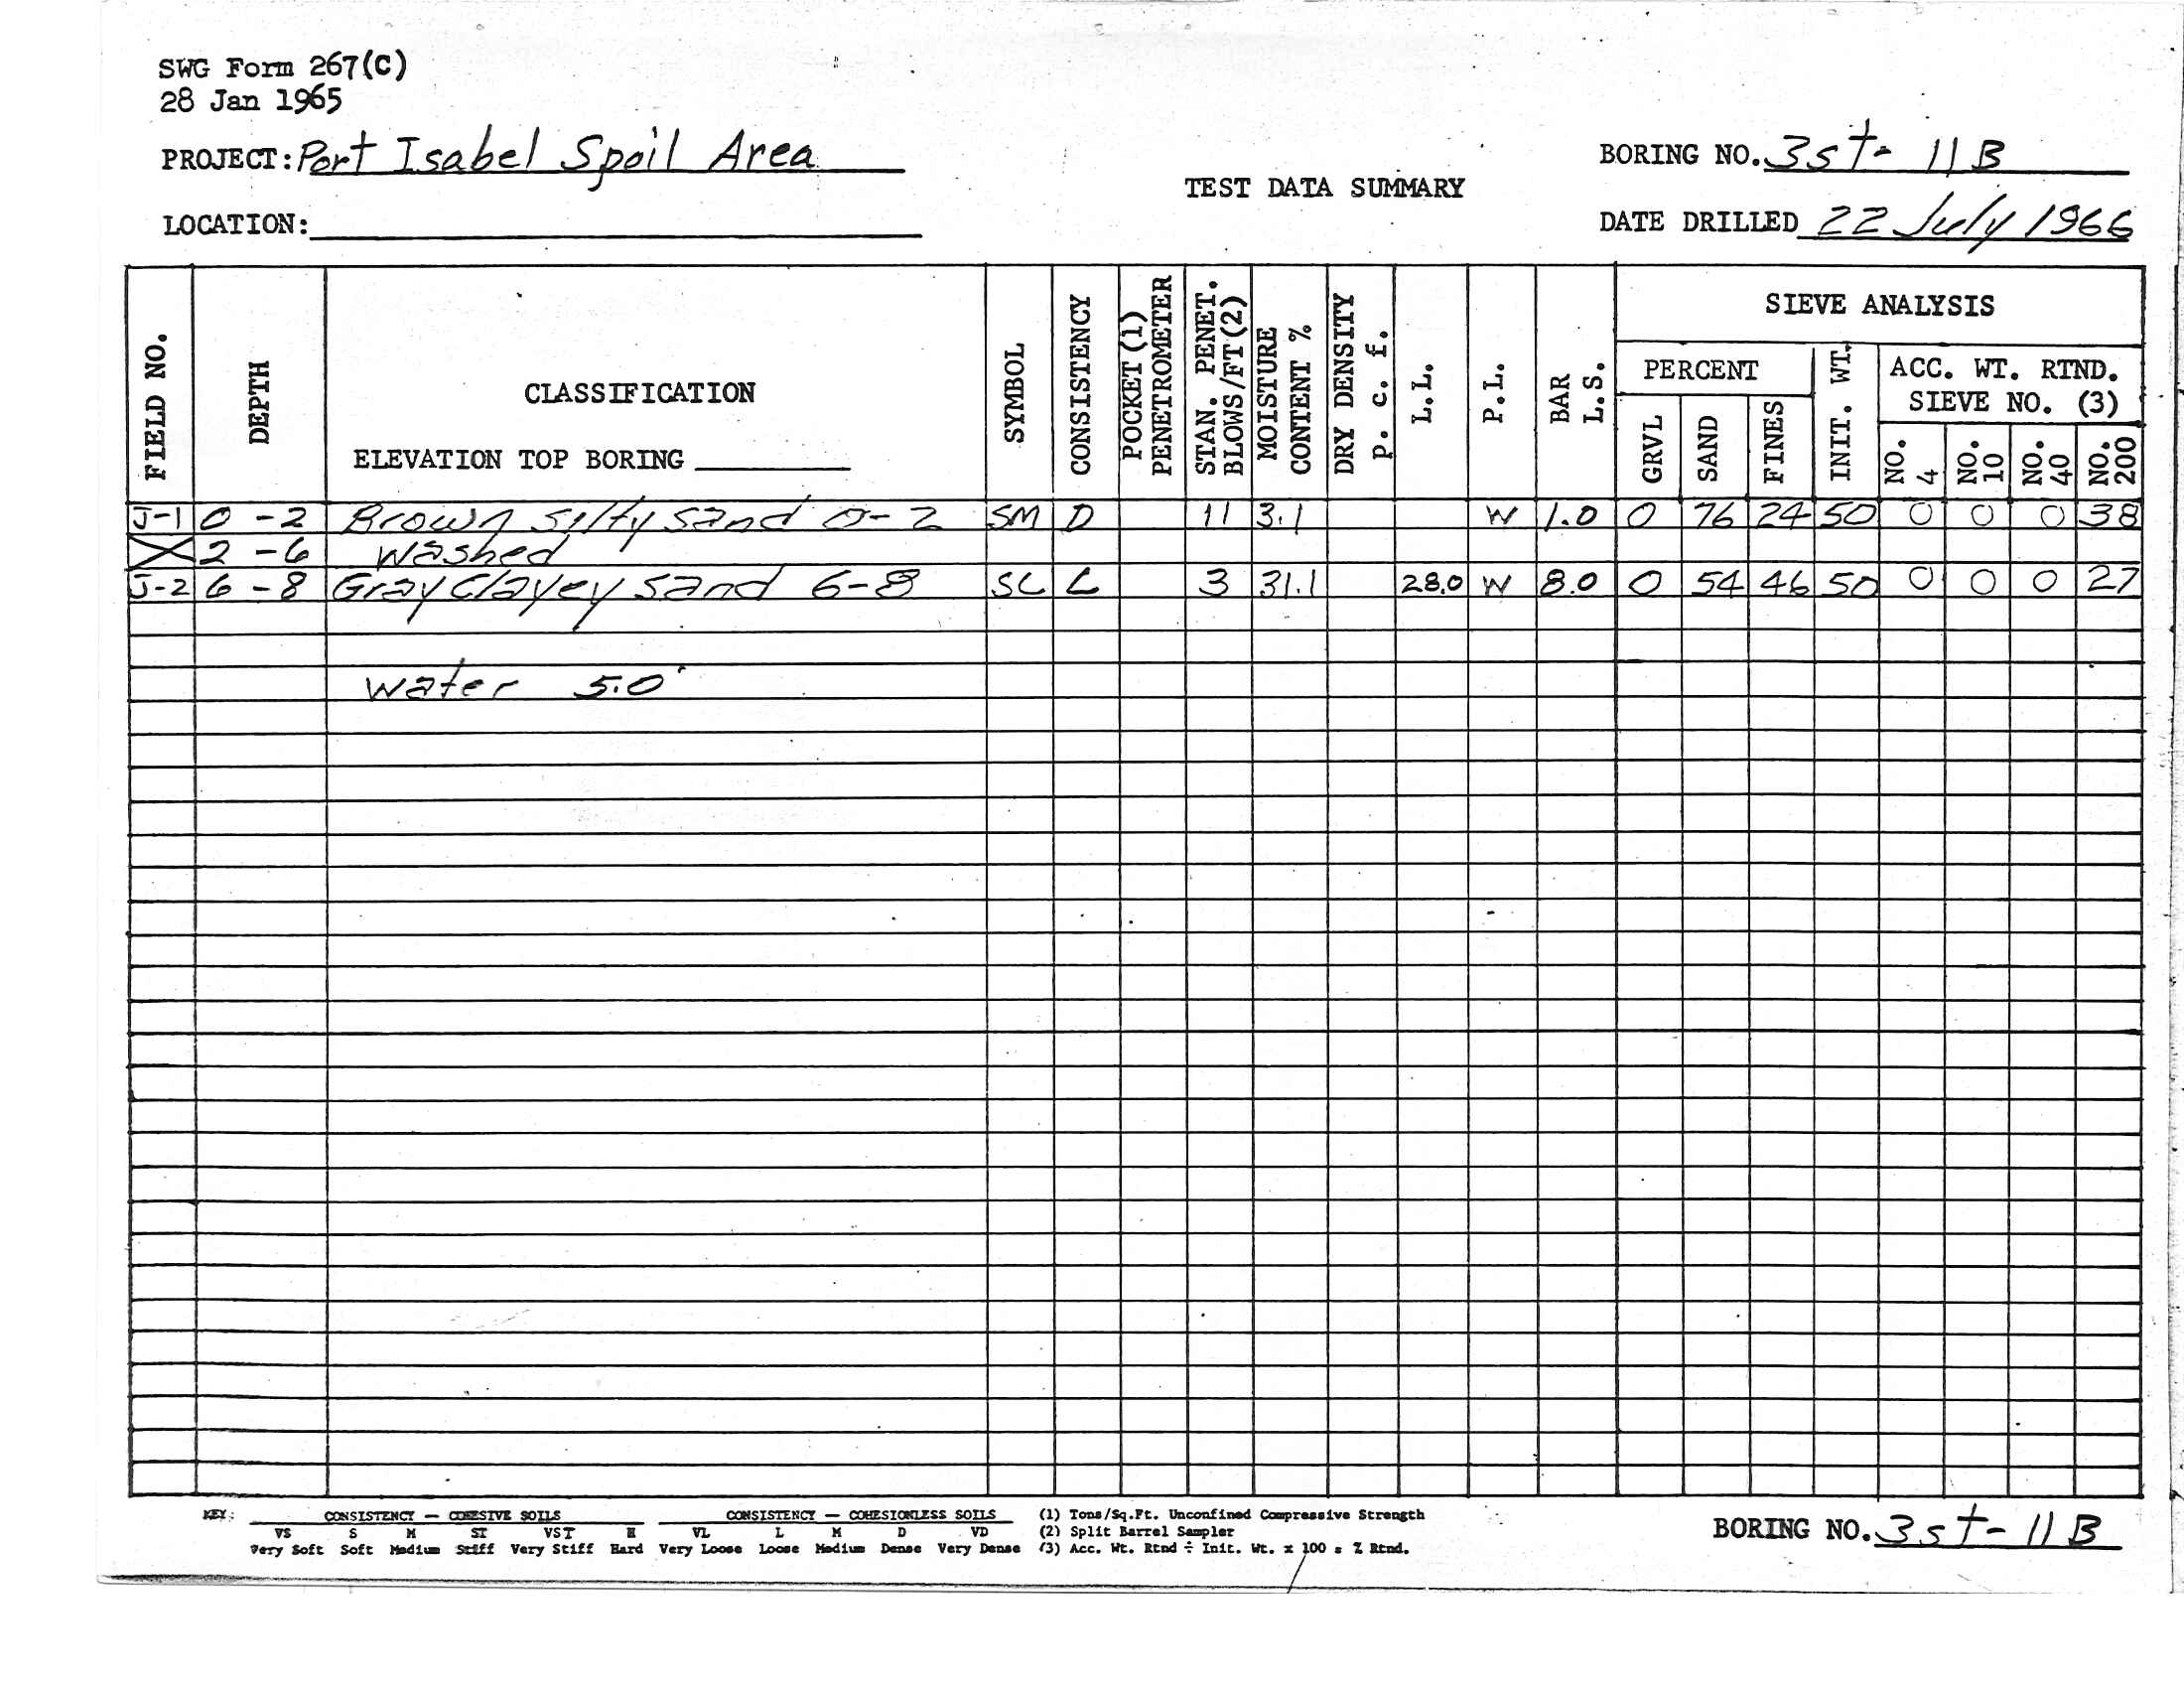 SWG Form 267(C)
28 Jan 1965
PROJECT: Port Isabel Spoil Area
BORING NO. 3st- 11B
TEST DATA SUMMARY
LOCATION:
DATE DRILLED 22 July 1966
FIELD NO.
DEPTH
CLASSIFICATION
ELEVATION TOP BORING
SYMBOL
CONSISTENCY
POCKET (1) PENETROMETER
STAN. PENET. BLOWS/FT (2)
MOISTURE CONTENT %
DRY DENSITY p. c. f.
L.L.
P.L.
BAR L.S.
SIEVE ANALYSIS
PERCENT
GRVL
SAND
FINES
INIT. WT.
ACC. WT. RTND.
SIEVE NO. (3)
NO. 4
NO. 10
NO. 40
NO. 200
J-1 0 - 2 Brown silty sand 0-2 SM D 11 3.1 W 1.0 0 76 24 50 0 0 0 38
2 - 6 washed
J-2 6 - 8 Gray Clayey sand 6-8 SC L 3 31.1 28.0 W 8.0 0 54 46 50 0 0 0 27
water 5.0'
KEY: CONSISTENCY — COHESIVE SOILS CONSISTENCY — COHESIONLESS SOILS (1) Tons/Sq.Ft. Unconfined Compressive Strength
VS S M ST VST H VL L M D VD (2) Split Barrel Sampler
Very Soft Soft Medium Stiff Very Stiff Hard Very Loose Loose Medium Dense Very Dense (3) Acc. Wt. Rtnd ÷ Init. Wt. x 100 = % Rtnd.
BORING NO. 3st- 11B